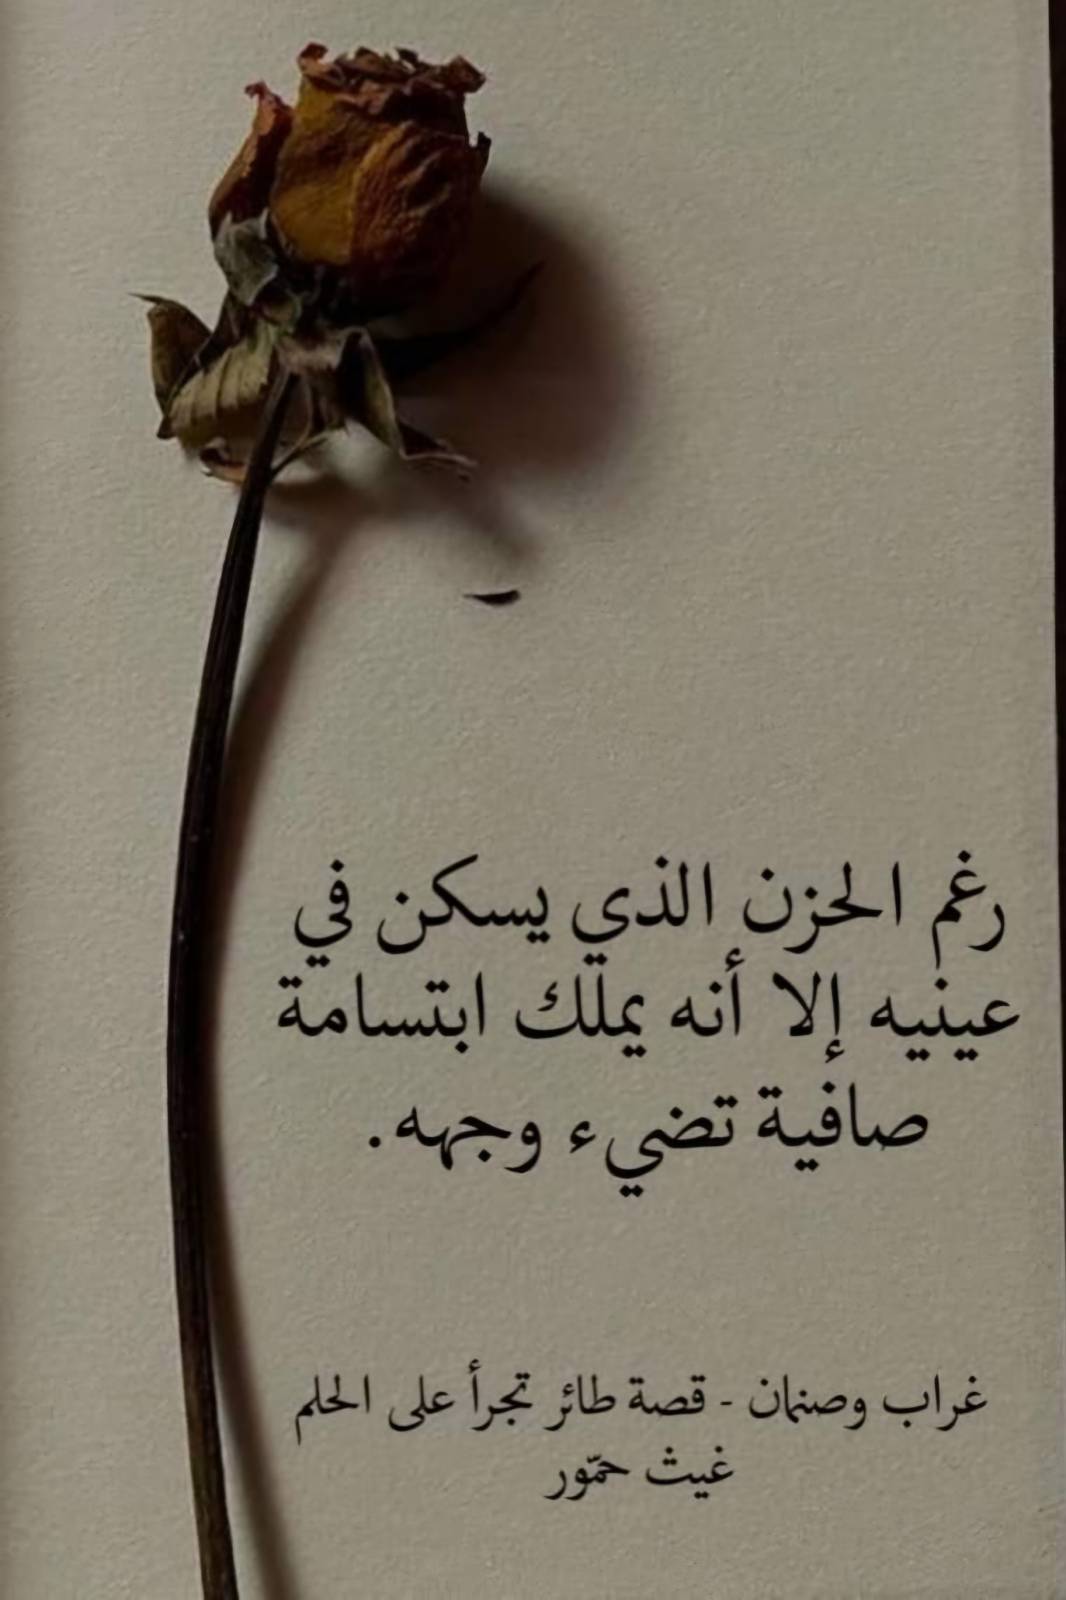 رغم الحزن الذي يسكن في
عينيه إلا أنه يملك ابتسامة
صافية تضيء وجهه.
غراب وصنمان - قصة طائر تجرأ على الحلم
غيث حمّور